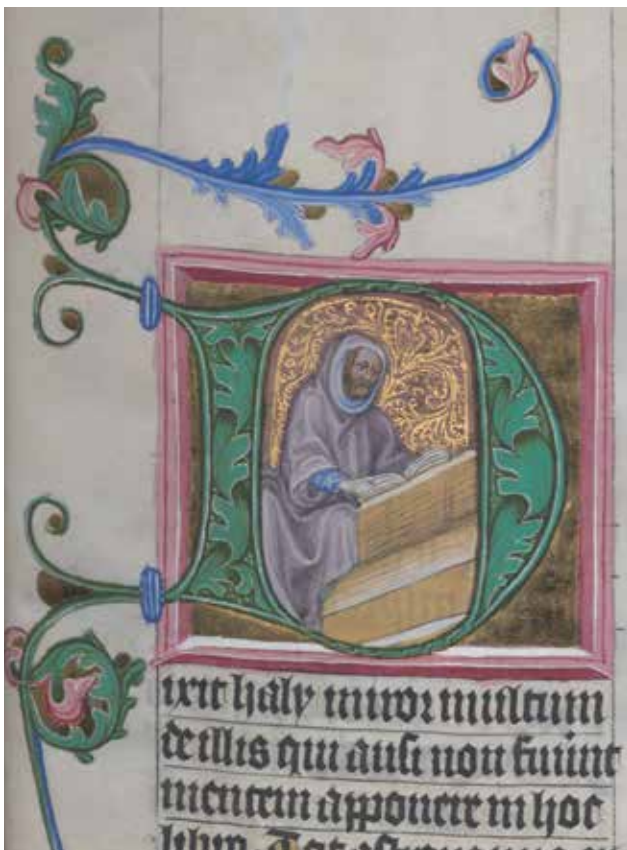 Dixit haly miror multum
de illis qui ausi non
mentem apponere in hoc